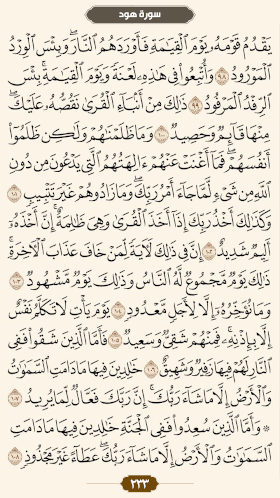 سورة هود
يَقْدُمُ قَوْمَهُۥ يَوْمَ ٱلْقِيَٰمَةِ فَأَوْرَدَهُمُ ٱلنَّارَ ۖ وَبِئْسَ ٱلْوِرْدُ
ٱلْمَوْرُودُ ٩٨ وَأُتْبِعُوا۟ فِى هَٰذِهِۦ لَعْنَةً وَيَوْمَ ٱلْقِيَٰمَةِ ۚ بِئْسَ
ٱلرِّفْدُ ٱلْمَرْفُودُ ٩٩ ذَٰلِكَ مِنْ أَنۢبَآءِ ٱلْقُرَىٰ نَقُصُّهُۥ عَلَيْكَ ۖ
مِنْهَا قَآئِمٌ وَحَصِيدٌ ١٠٠ وَمَا ظَلَمْنَٰهُمْ وَلَٰكِن ظَلَمُوٓا۟
أَنفُسَهُمْ ۖ فَمَآ أَغْنَتْ عَنْهُمْ ءَالِهَتُهُمُ ٱلَّتِى يَدْعُونَ مِن دُونِ
ٱللَّهِ مِن شَىْءٍ لَّمَّا جَآءَ أَمْرُ رَبِّكَ ۖ وَمَا زَادُوهُمْ غَيْرَ تَتْبِيبٍ ١٠١
وَكَذَٰلِكَ أَخْذُ رَبِّكَ إِذَآ أَخَذَ ٱلْقُرَىٰ وَهِىَ ظَٰلِمَةٌ ۚ إِنَّ أَخْذَهُۥٓ
أَلِيمٌ شَدِيدٌ ١٠٢ إِنَّ فِى ذَٰلِكَ لَءَايَةً لِّمَنْ خَافَ عَذَابَ ٱلْءَاخِرَةِ ۚ
ذَٰلِكَ يَوْمٌ مَّجْمُوعٌ لَّهُ ٱلنَّاسُ وَذَٰلِكَ يَوْمٌ مَّشْهُودٌ ١٠٣
وَمَا نُؤَخِّرُهُۥٓ إِلَّا لِأَجَلٍ مَّعْدُودٍ ١٠٤ يَوْمَ يَأْتِ لَا تَكَلَّمُ نَفْسٌ
إِلَّا بِإِذْنِهِۦ ۚ فَمِنْهُمْ شَقِىٌّ وَسَعِيدٌ ١٠٥ فَأَمَّا ٱلَّذِينَ شَقُوا۟ فَفِى
ٱلنَّارِ لَهُمْ فِيهَا زَفِيرٌ وَشَهِيقٌ ١٠٦ خَٰلِدِينَ فِيهَا مَا دَامَتِ ٱلسَّمَٰوَٰتُ
وَٱلْأَرْضُ إِلَّا مَا شَآءَ رَبُّكَ ۚ إِنَّ رَبَّكَ فَعَّالٌ لِّمَا يُرِيدُ ١٠٧
۞ وَأَمَّا ٱلَّذِينَ سُعِدُوا۟ فَفِى ٱلْجَنَّةِ خَٰلِدِينَ فِيهَا مَا دَامَتِ
ٱلسَّمَٰوَٰتُ وَٱلْأَرْضُ إِلَّا مَا شَآءَ رَبُّكَ ۖ عَطَآءً غَيْرَ مَجْذُوذٍ ١٠٨
٢٣٣